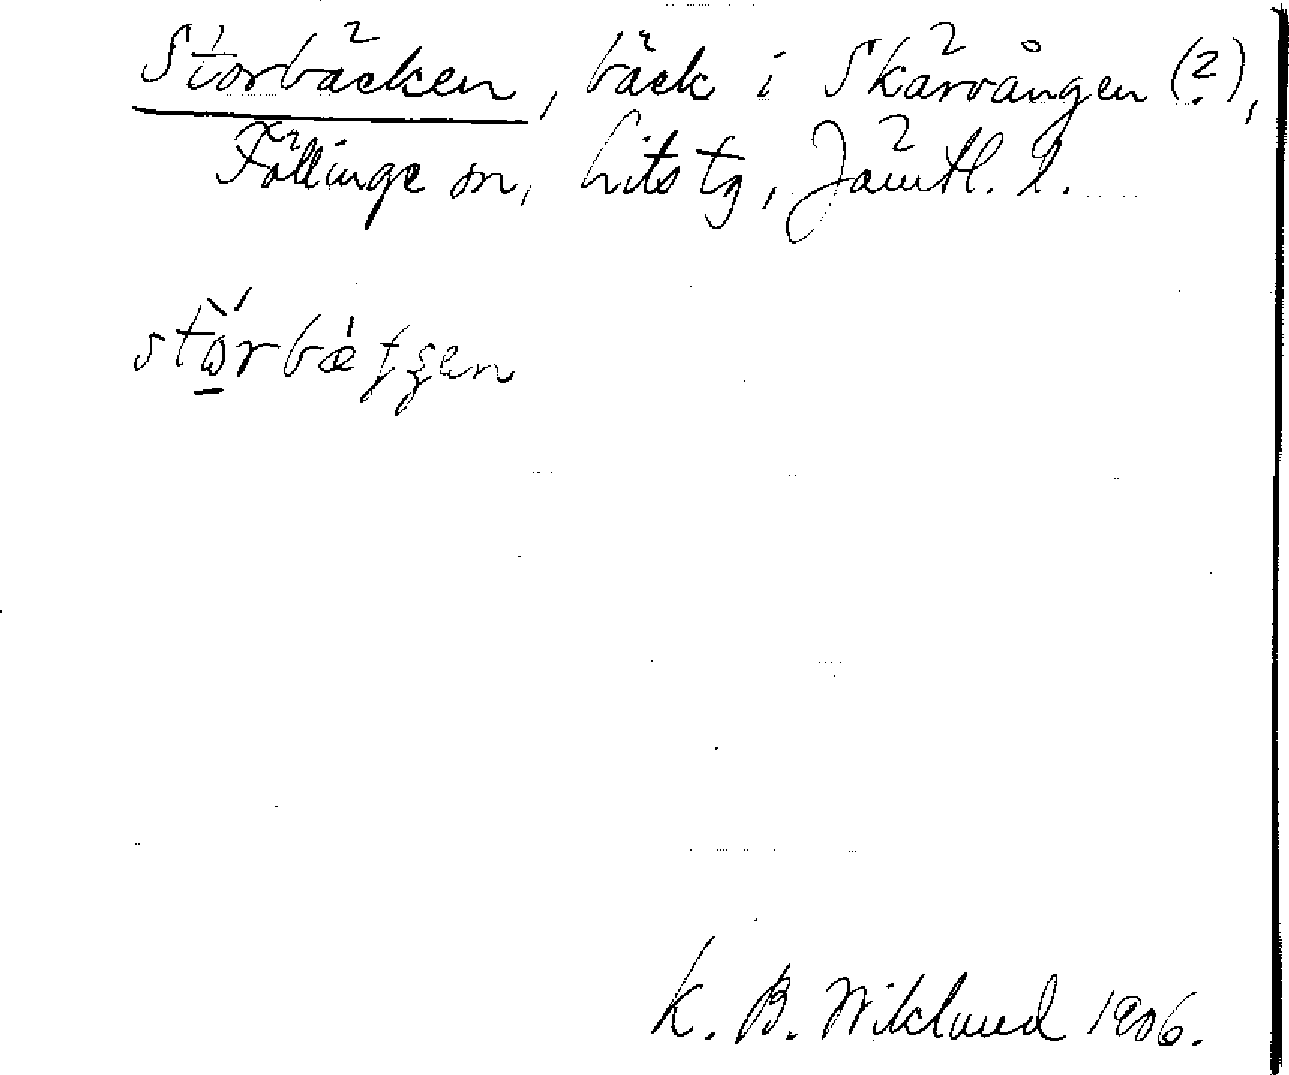 Storbäcken, bäck i Skärvången (?),
Föllinge sn, Lits tg, Jämtl. l.
K. B. Wiklund 1906.